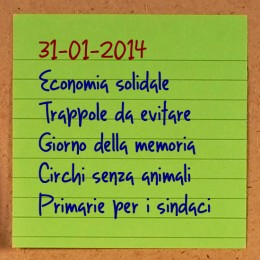 31-01-2014
Economia solidale
Trappole da evitare
Giorno della memoria
Circhi senza animali
Primarie per i sindaci